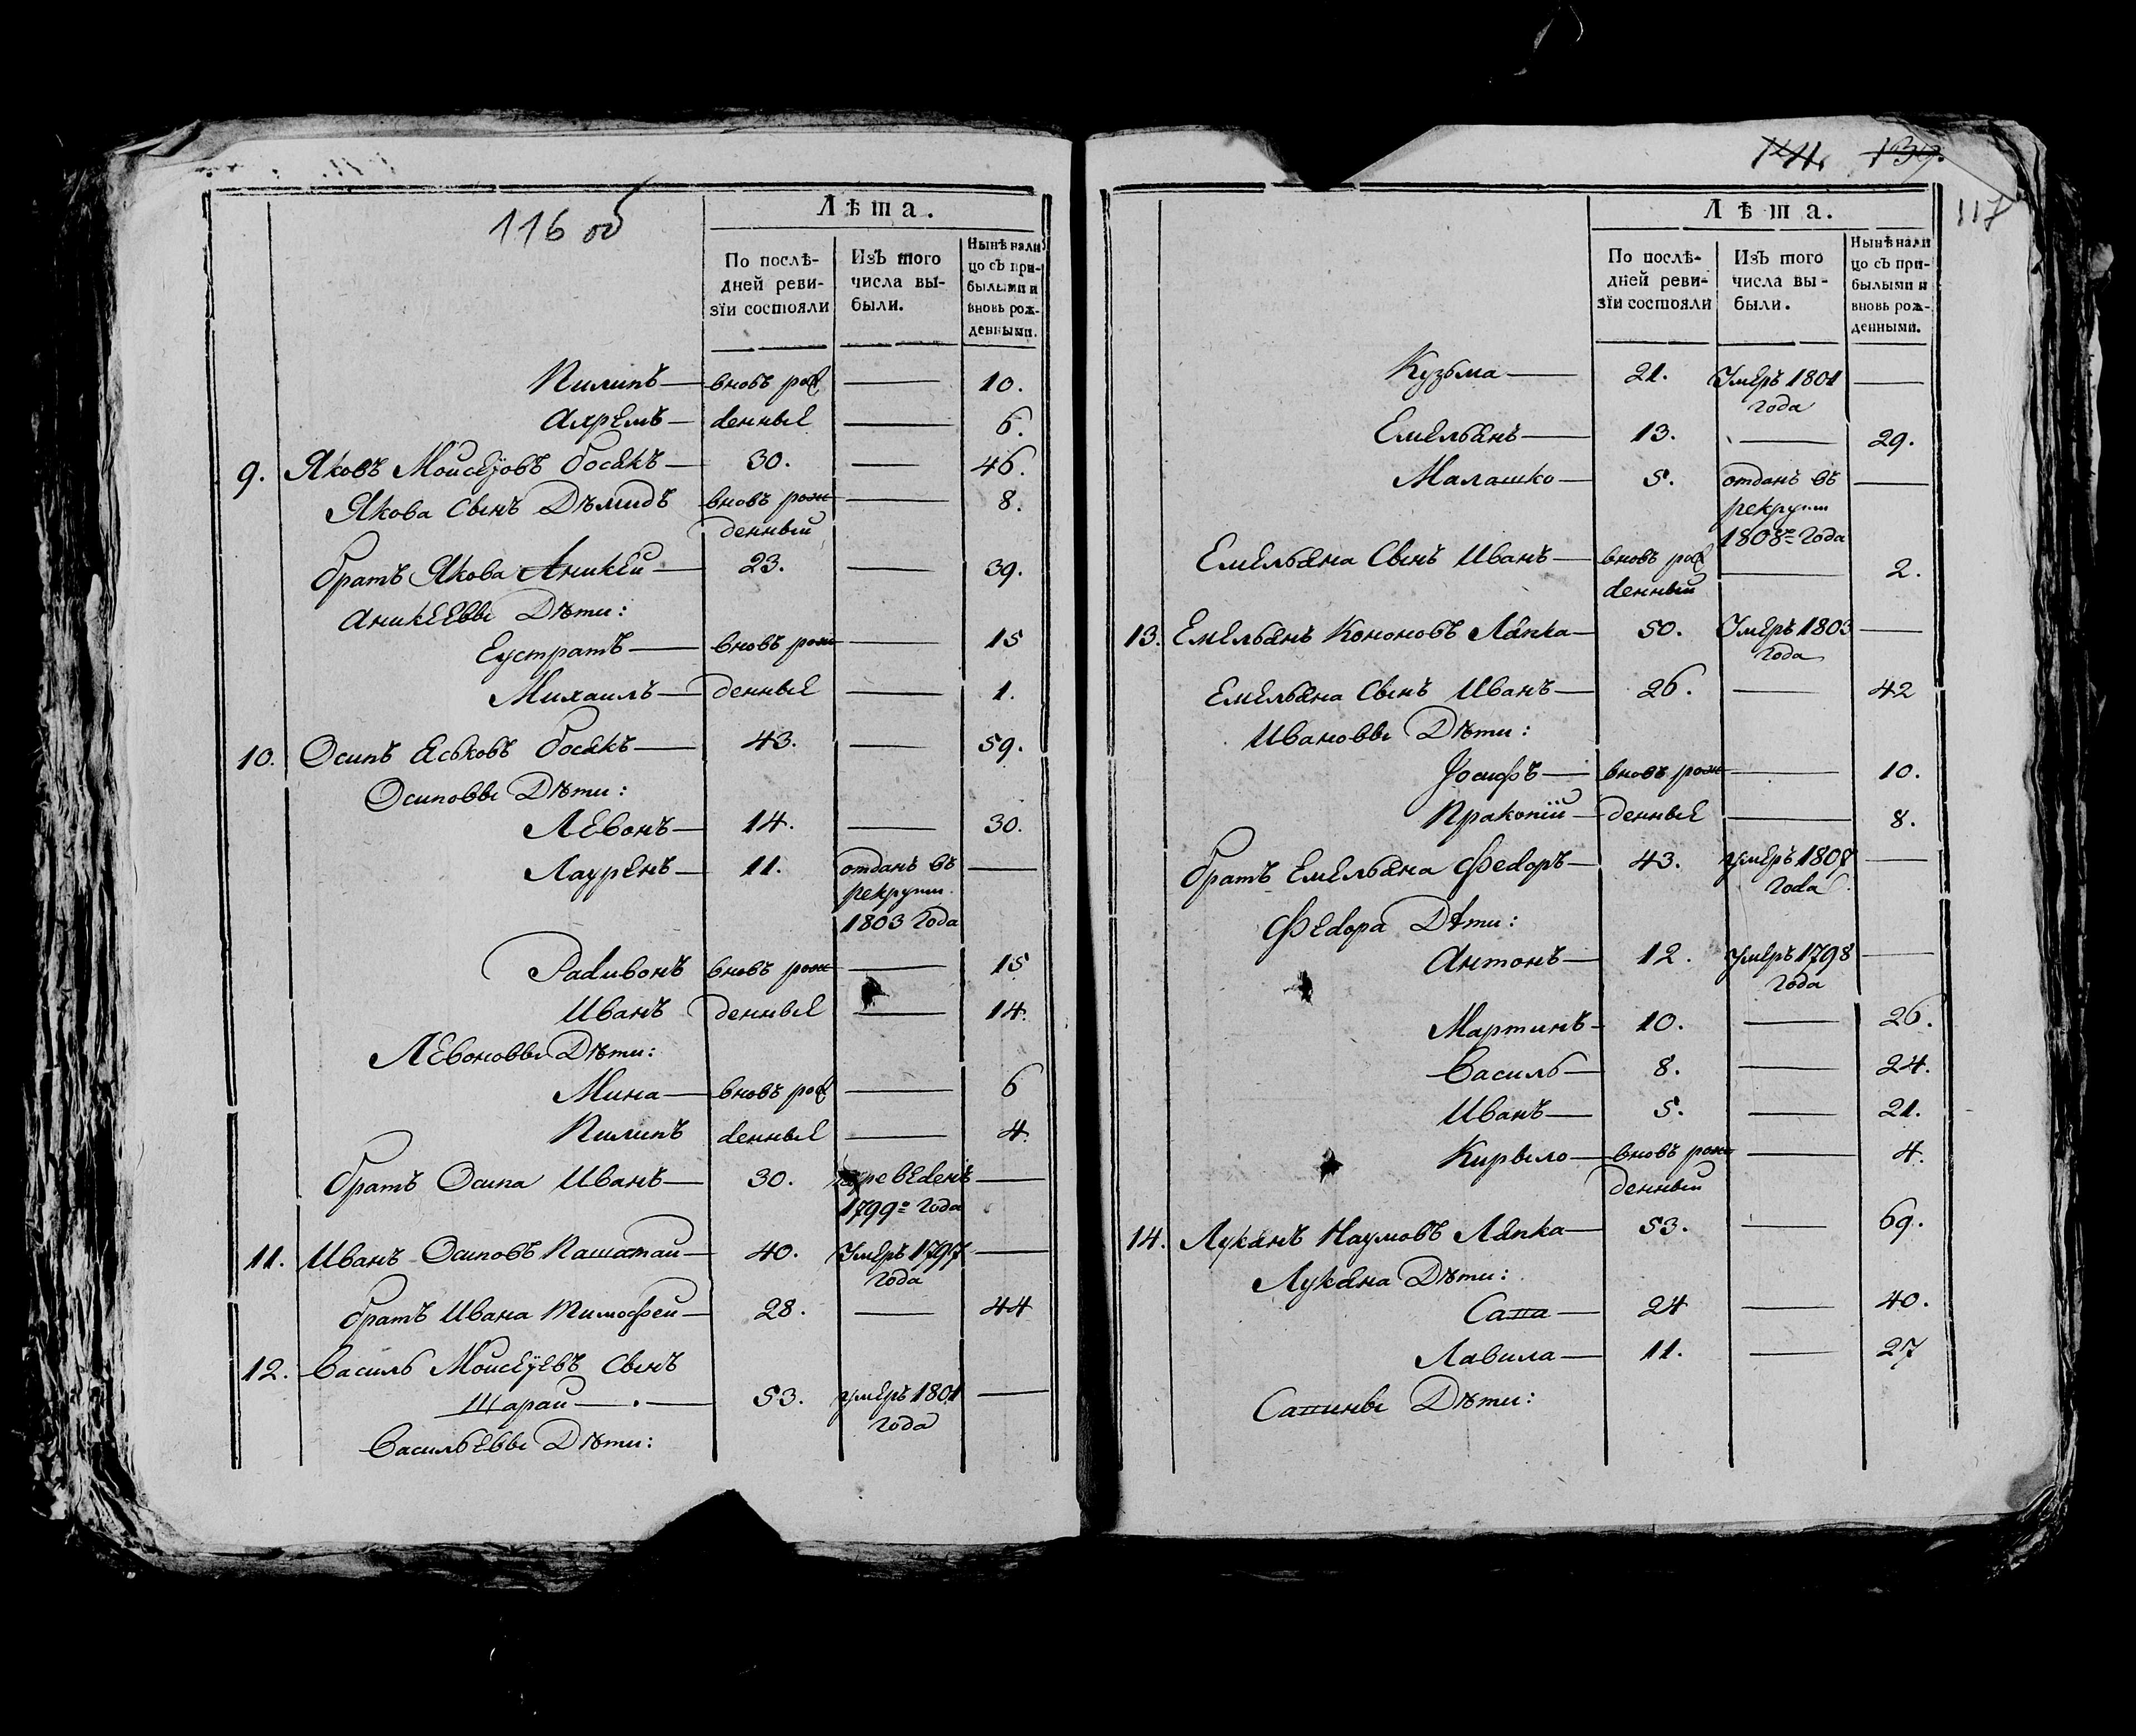 116 об
Лѣта.
По послѣ-
дней реви-
зїи состояли
Изъ того
числа вы-
были.
Нынѣ нали
цо съ при-
былыми и
вновь рож-
денными.
Пилипъ — вновь рож — 10.
Ахремъ — денные — 6.
9. Яковъ Мойсеўовъ Босякъ — 30. — 46.
Якова Сынъ Дѣмидъ вновь рож — 8.
денный
братъ Якова Аникей — 23. — 39.
Аникеевы Дѣти:
Еустратъ — вновь рож — 15
Михаилъ — денные — 1.
10. Осипъ Еськовъ Босякъ — 43. — 59.
Осиповы Дѣти:
Левонъ — 14. — 30.
Лауренъ — 11. отданъ въ —
рекруты
1803 Года
Радивонъ вновь рож — 15
Иванъ денные — 14.
Левоновы Дѣти:
Мина — вновь рож — 6
Пилипъ денные — 4.
братъ Осипа Иванъ — 30. переведенъ —
1799го Года
11. Иванъ Осиповъ Пашатай — 40. Умеръ 1797 —
Года
братъ Ивана Тимофей — 28. — 44
12. Василь Мойсеўевъ Сынъ
Шарай — . — 53. умеръ 1801 —
Года
Васильевы Дѣти:
117
Лѣта.
По послѣ-
дней реви-
зїи состояли
Изъ того
числа вы-
были.
Нынѣ нали
цо съ при-
былыми и
вновь рож-
денными.
Кузьма — 21. Умеръ 1801 —
Года
Емельянъ — 13. — 29.
Малашко — 5. отданъ въ —
рекруты
1808го Года
Емельяна Сынъ Иванъ — вновь рож — 2.
денный
13. Емельянъ Кононовъ Ляпка — 50. Умеръ 1803 —
Года
Емельяна Сынъ Иванъ — 26. — 42
Ивановы Дѣти:
Іосифъ — вновь рож — 10.
Пракопій — денные — 8.
братъ Емельяна Федоръ — 43. умеръ 1807 —
Года
Федора Дѣти:
Антонъ — 12. умеръ 1798 —
Года
Мартинъ — 10. — 26.
Василь — 8. — 24.
Иванъ — 5. — 21.
Кирыло — вновь рож — 4.
денный
14. Лукянъ Наумовъ Ляпка — 53. — 69.
Лукяна Дѣти:
Сапа — 24 — 40.
Лавила — 11. — 27
Сапины Дѣти: